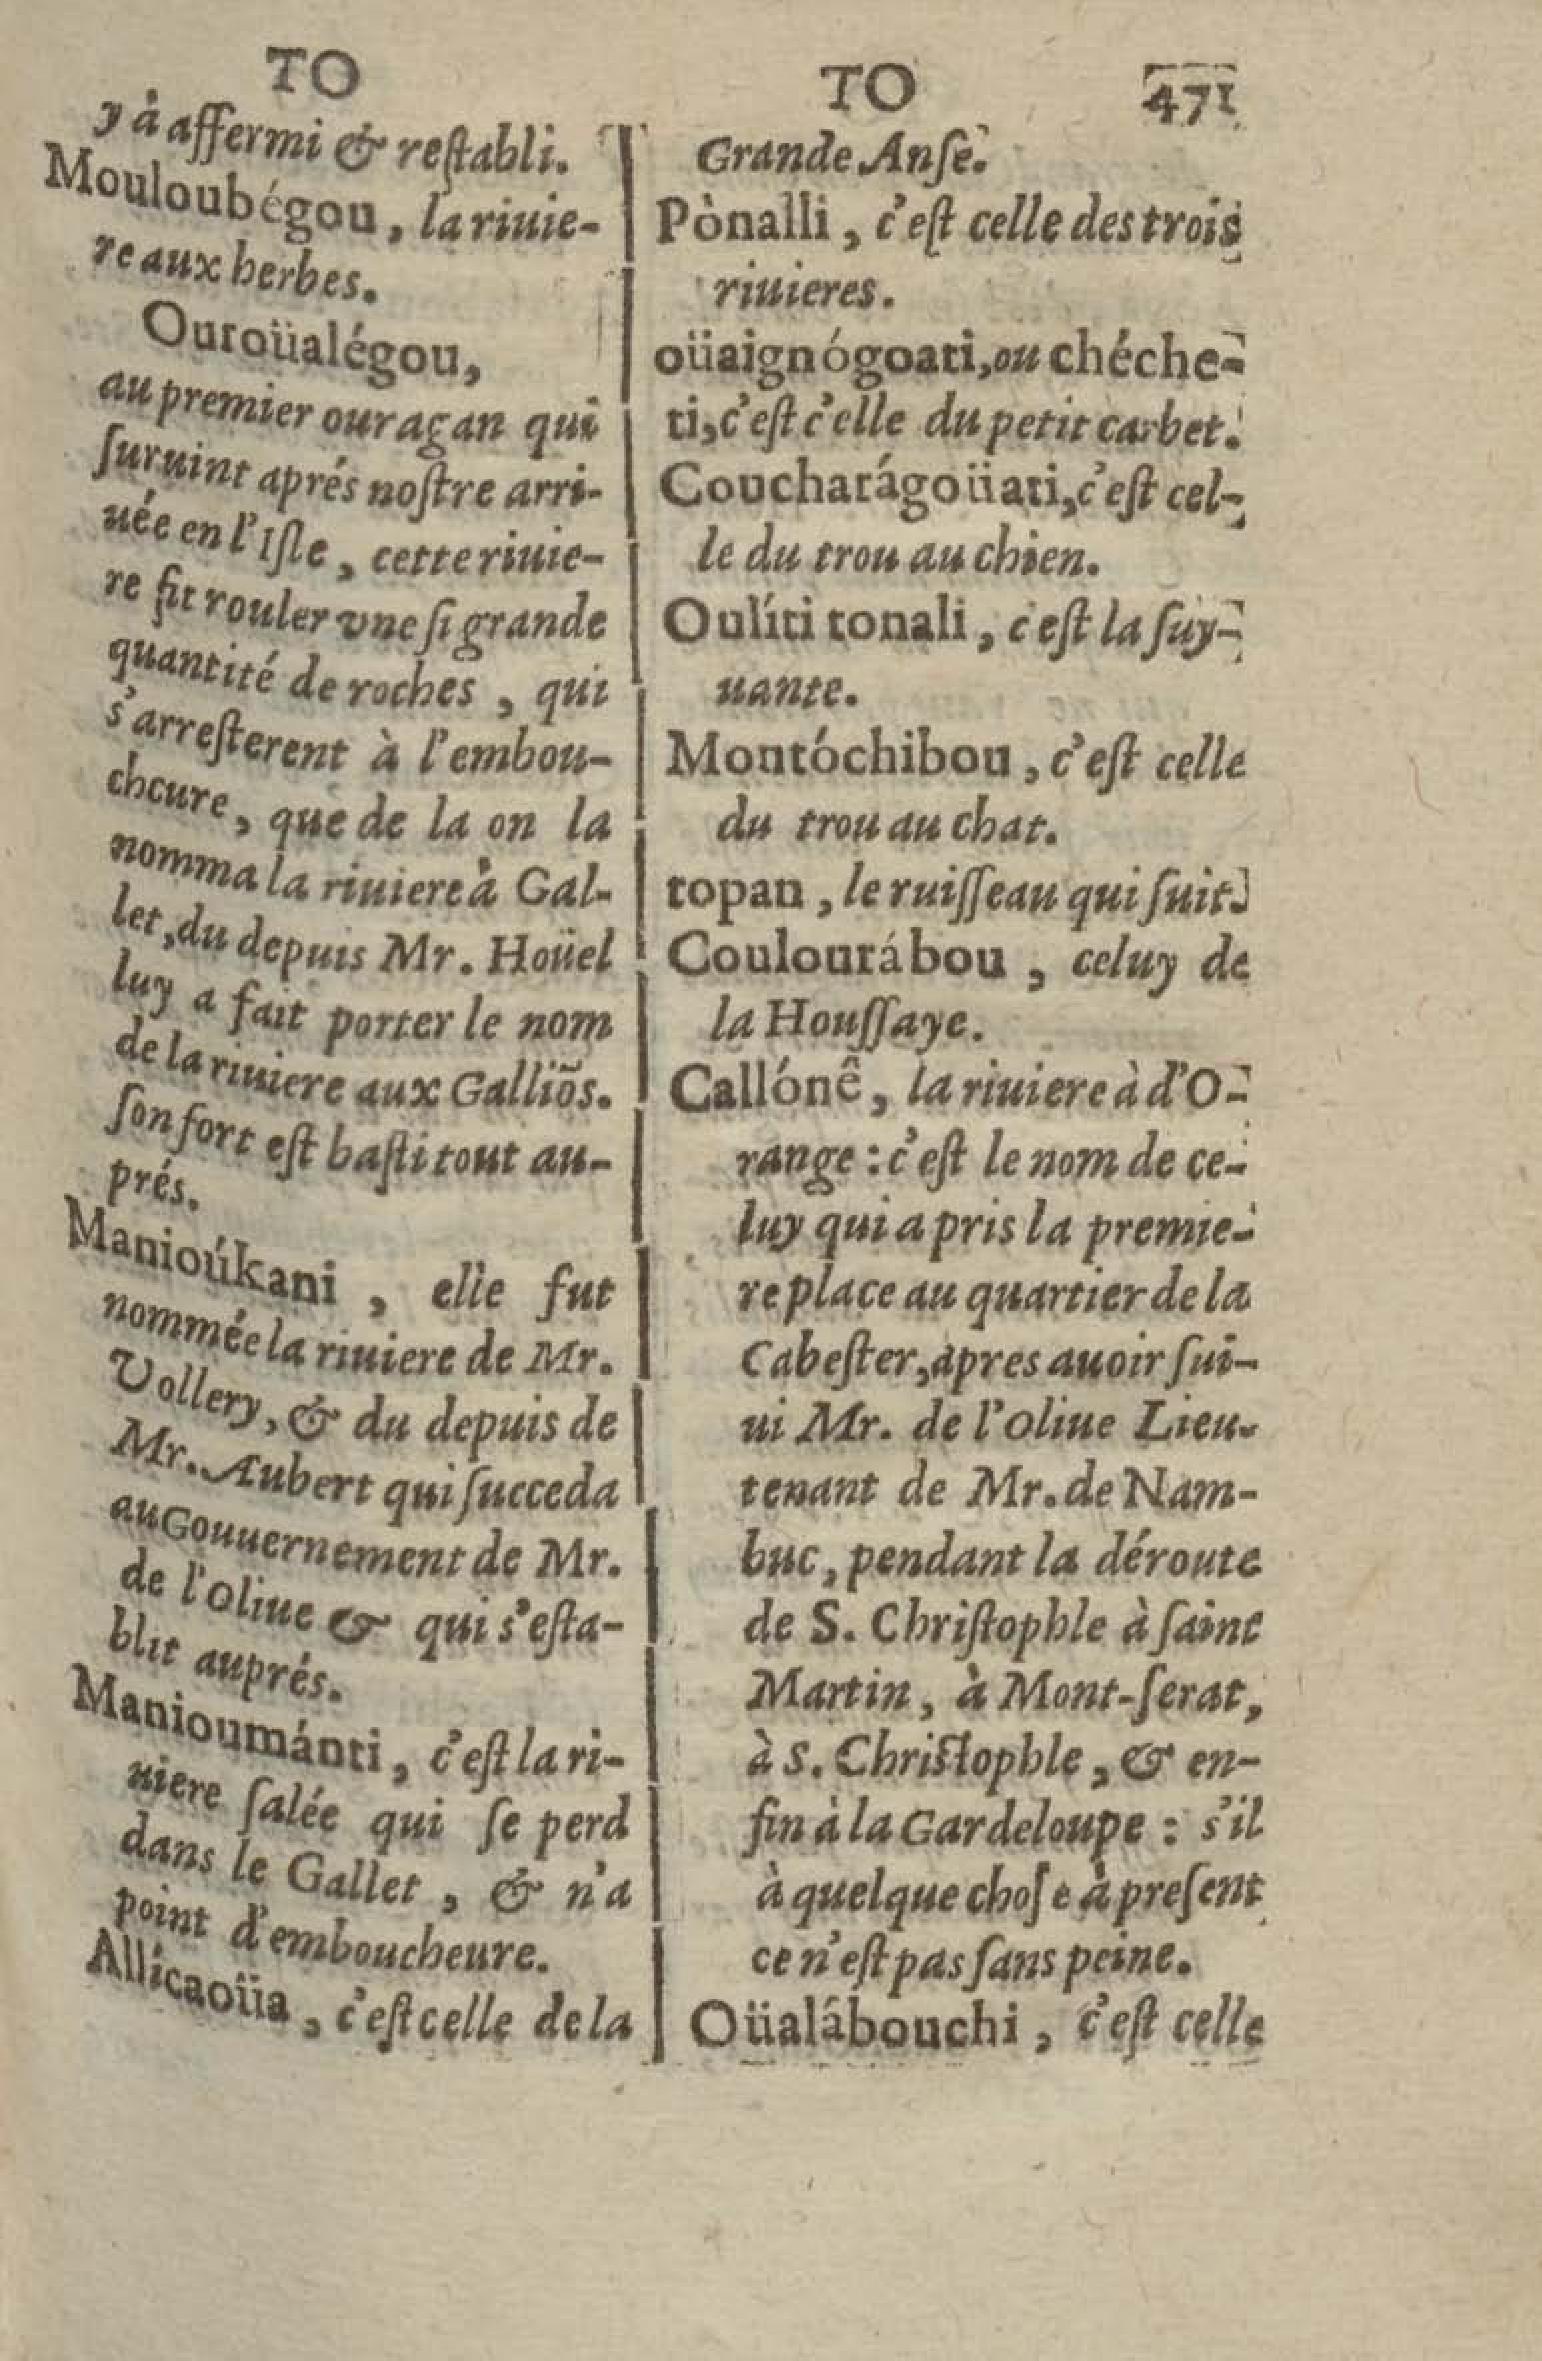 TO
y à affermi & reſtabli.
Mouloubégou, la riuie-
re aux herbes.
Ouroüalégou,
au premier ouragan qui
ſuruint aprés noſtre arri-
uée en l'Iſle, cette riuie-
re fit rouler vne ſi grande
quantité de roches, qui
s'arreſterent à l'embou-
chcure, que de la on la
nomma la riuiere à Gal-
let, du depuis Mr. Hoüel
luy a fait porter le nom
de la riuiere aux Galliõs.
ſon fort eſt baſti tout au-
prés.
Manioúkani, elle fut
nommée la riuiere de Mr.
Vollery, & du depuis de
Mr. Aubert qui ſucceda
au Gouuernement de Mr.
de l'oliue & qui s'eſta-
blit auprés.
Manioumánti, c'eſt la ri-
uiere ſalée qui ſe perd
dans le Gallet, & n'a
point d'emboucheure.
Allícaoüa, c'eſt celle de la
TO 471
Grande Anſe.
Pònalli, c'eſt celle des trois
riuieres.
oüaignógoati, ou chéche-
ti, c'eſt c'elle du petit carbet.
Coucharágoüati, c'eſt cel-
le du trou au chien.
Oulíti tonali, c'eſt la ſuy-
uante.
Montóchibou, c'eſt celle
du trou au chat.
topan, le ruiſſeau qui ſuit.
Coulourábou, celuy de
la Houſſaye.
Callónê, la riuiere à d'O-
range: c'eſt le nom de ce-
luy qui a pris la premie-
re place au quartier de la
Cabeſter, apres auoir ſui-
ui Mr. de l'oliue Lieu-
tenant de Mr. de Nam-
buc, pendant la déroute
de S. Chriſtophle à ſaint
Martin, à Mont-ſerat,
à S. Chriſtophle, & en-
fin à la Gardeloupe: s'il
à quelque choſe à preſent
ce n'eſt pas ſans peine.
Oüalábouchi, c'eſt celle